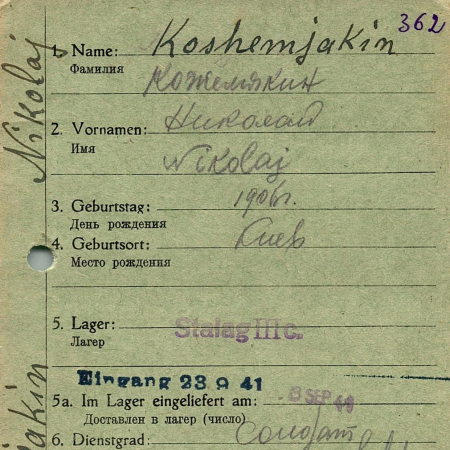 362
1. Name: Koshemjakin
Фамилия Кожемякин
2. Vornamen: Николай
Имя Nikolaj
3. Geburtstag: 1906г.
День рождения
4. Geburtsort: Киев
Место рождения
5. Lager: Stalag III c.
Лагер
Eingang 23 9 41
5a. Im Lager eingeliefert am: 8 SEP.
Доставлен в лагер (число)
6. Dienstgrad: Солдат
Nikolaj